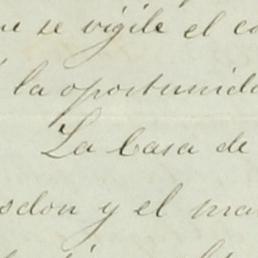 se vigile el
la oportunida
La Casa de
sdon y el ma